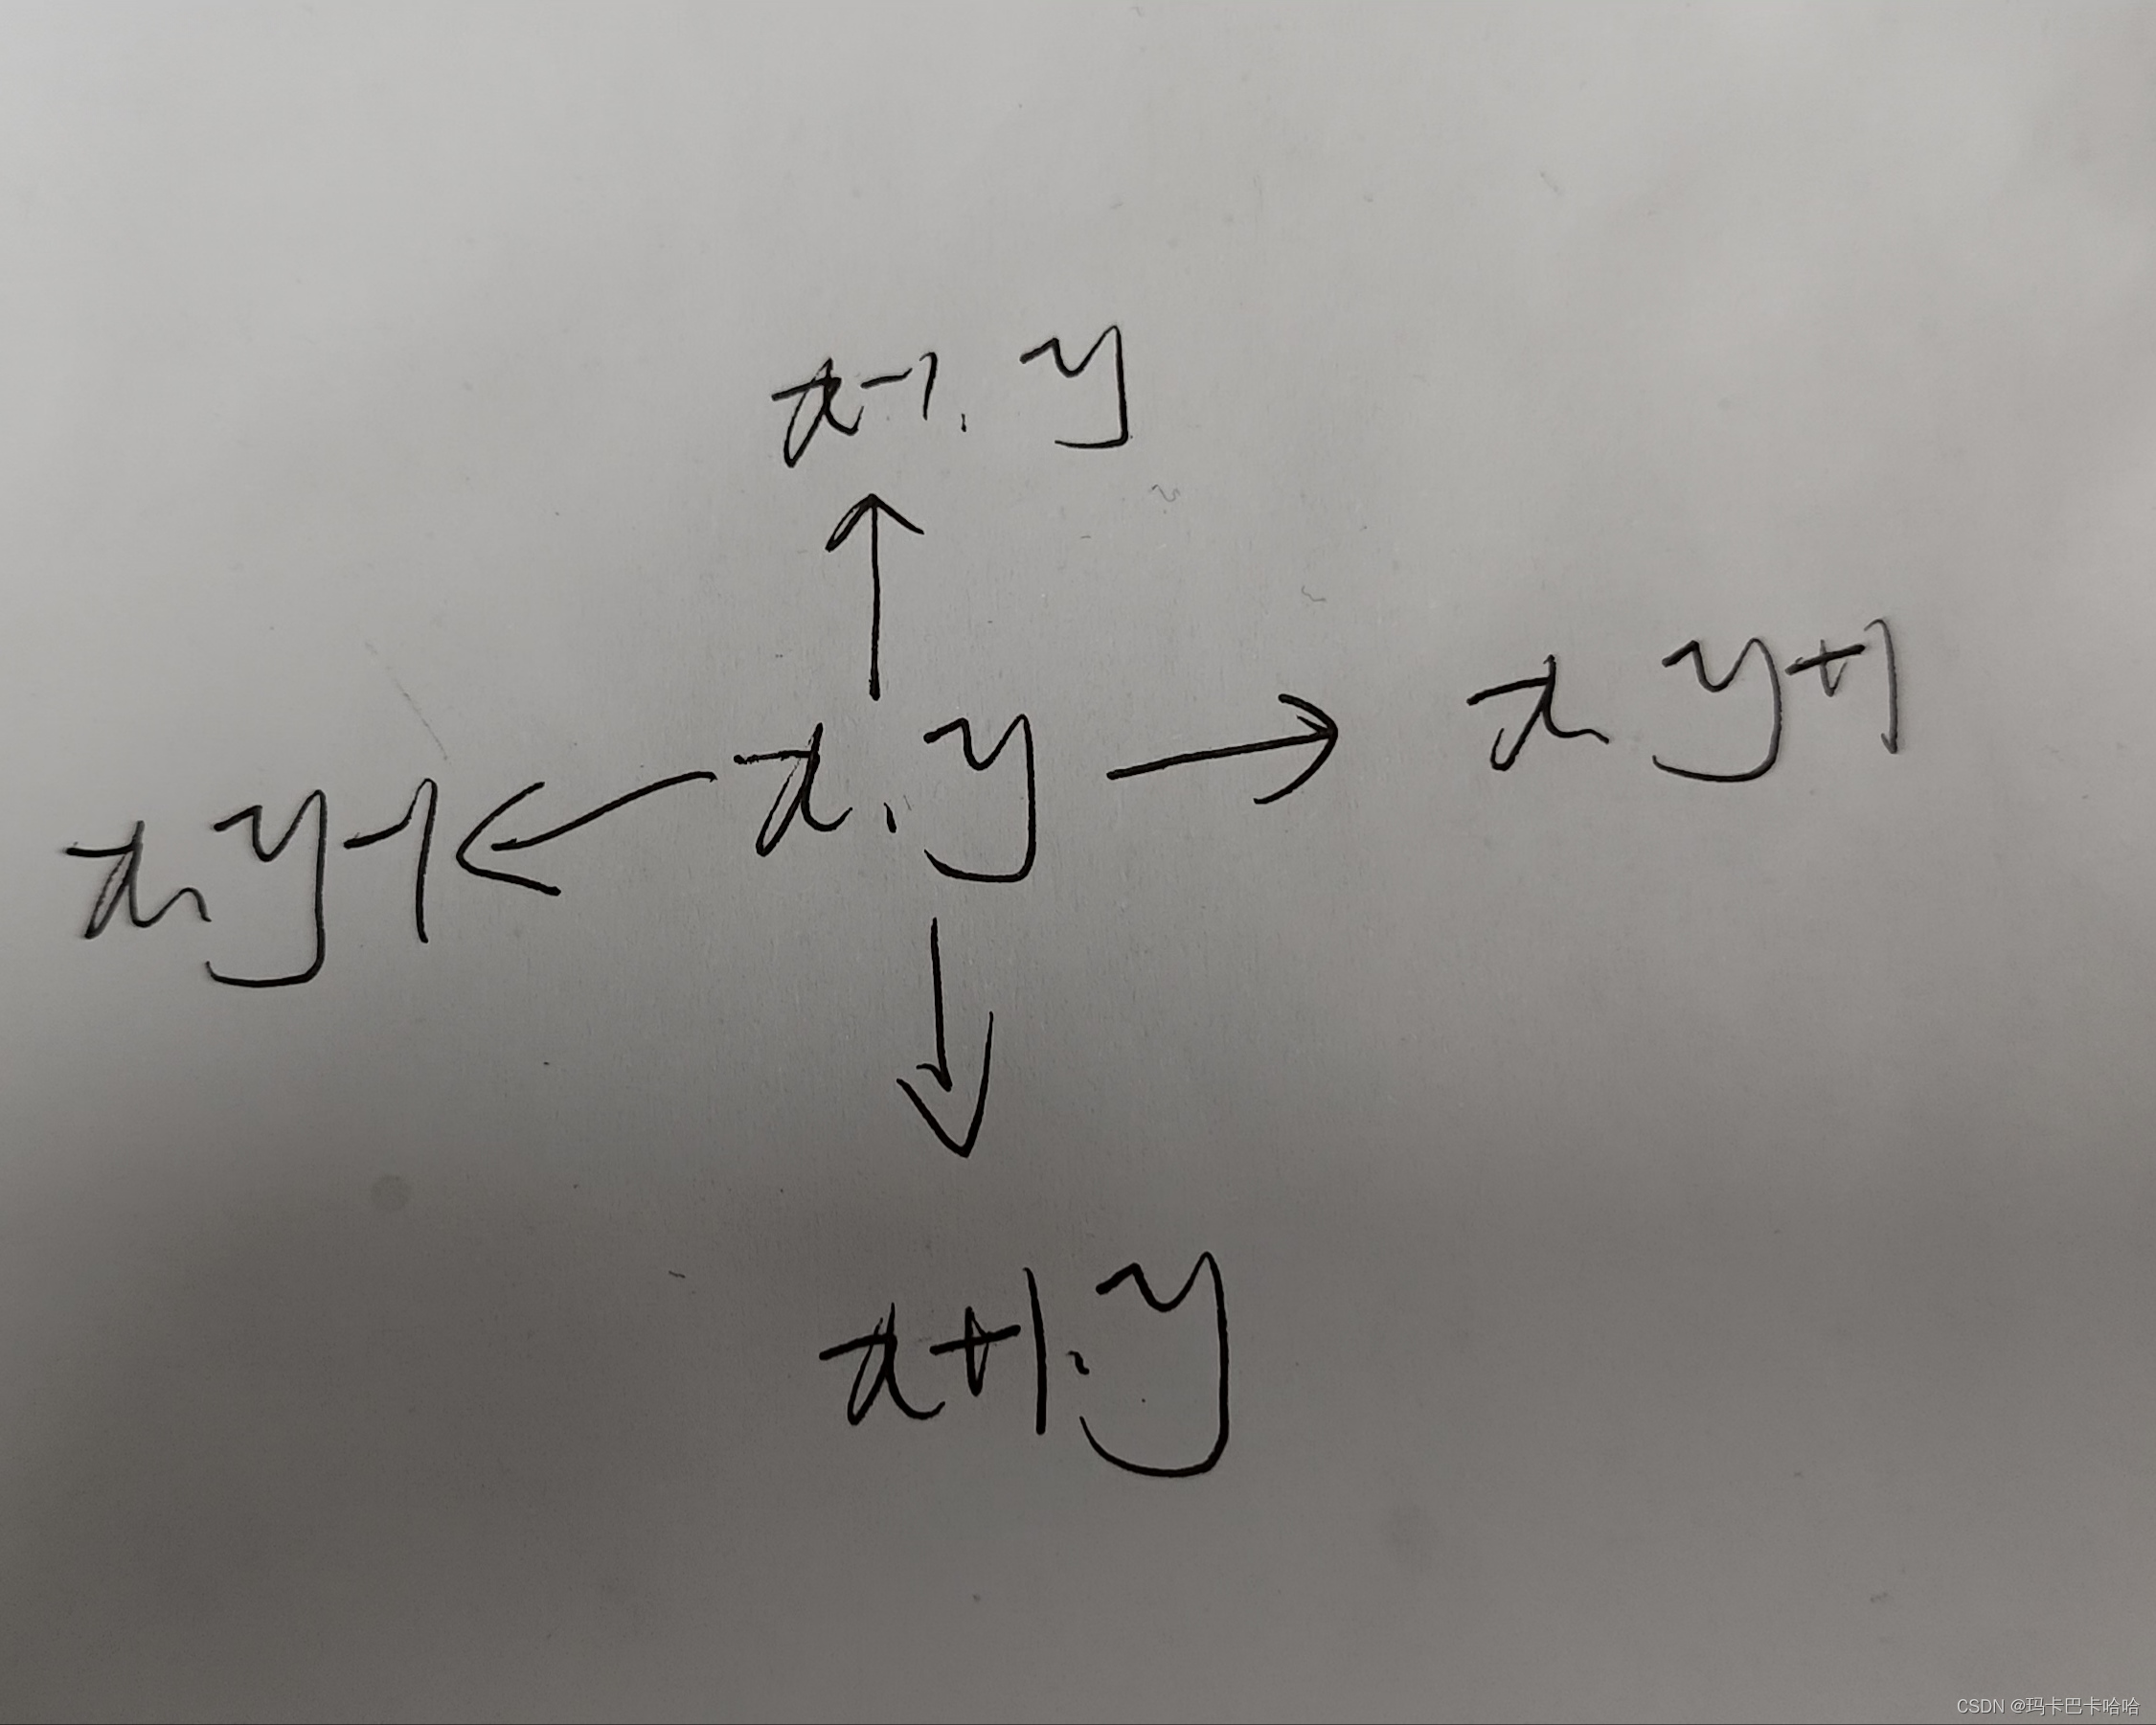 x-1, y
x, y+1
x, y
x, y-1
x+1, y
CSDN @玛卡巴卡哈哈